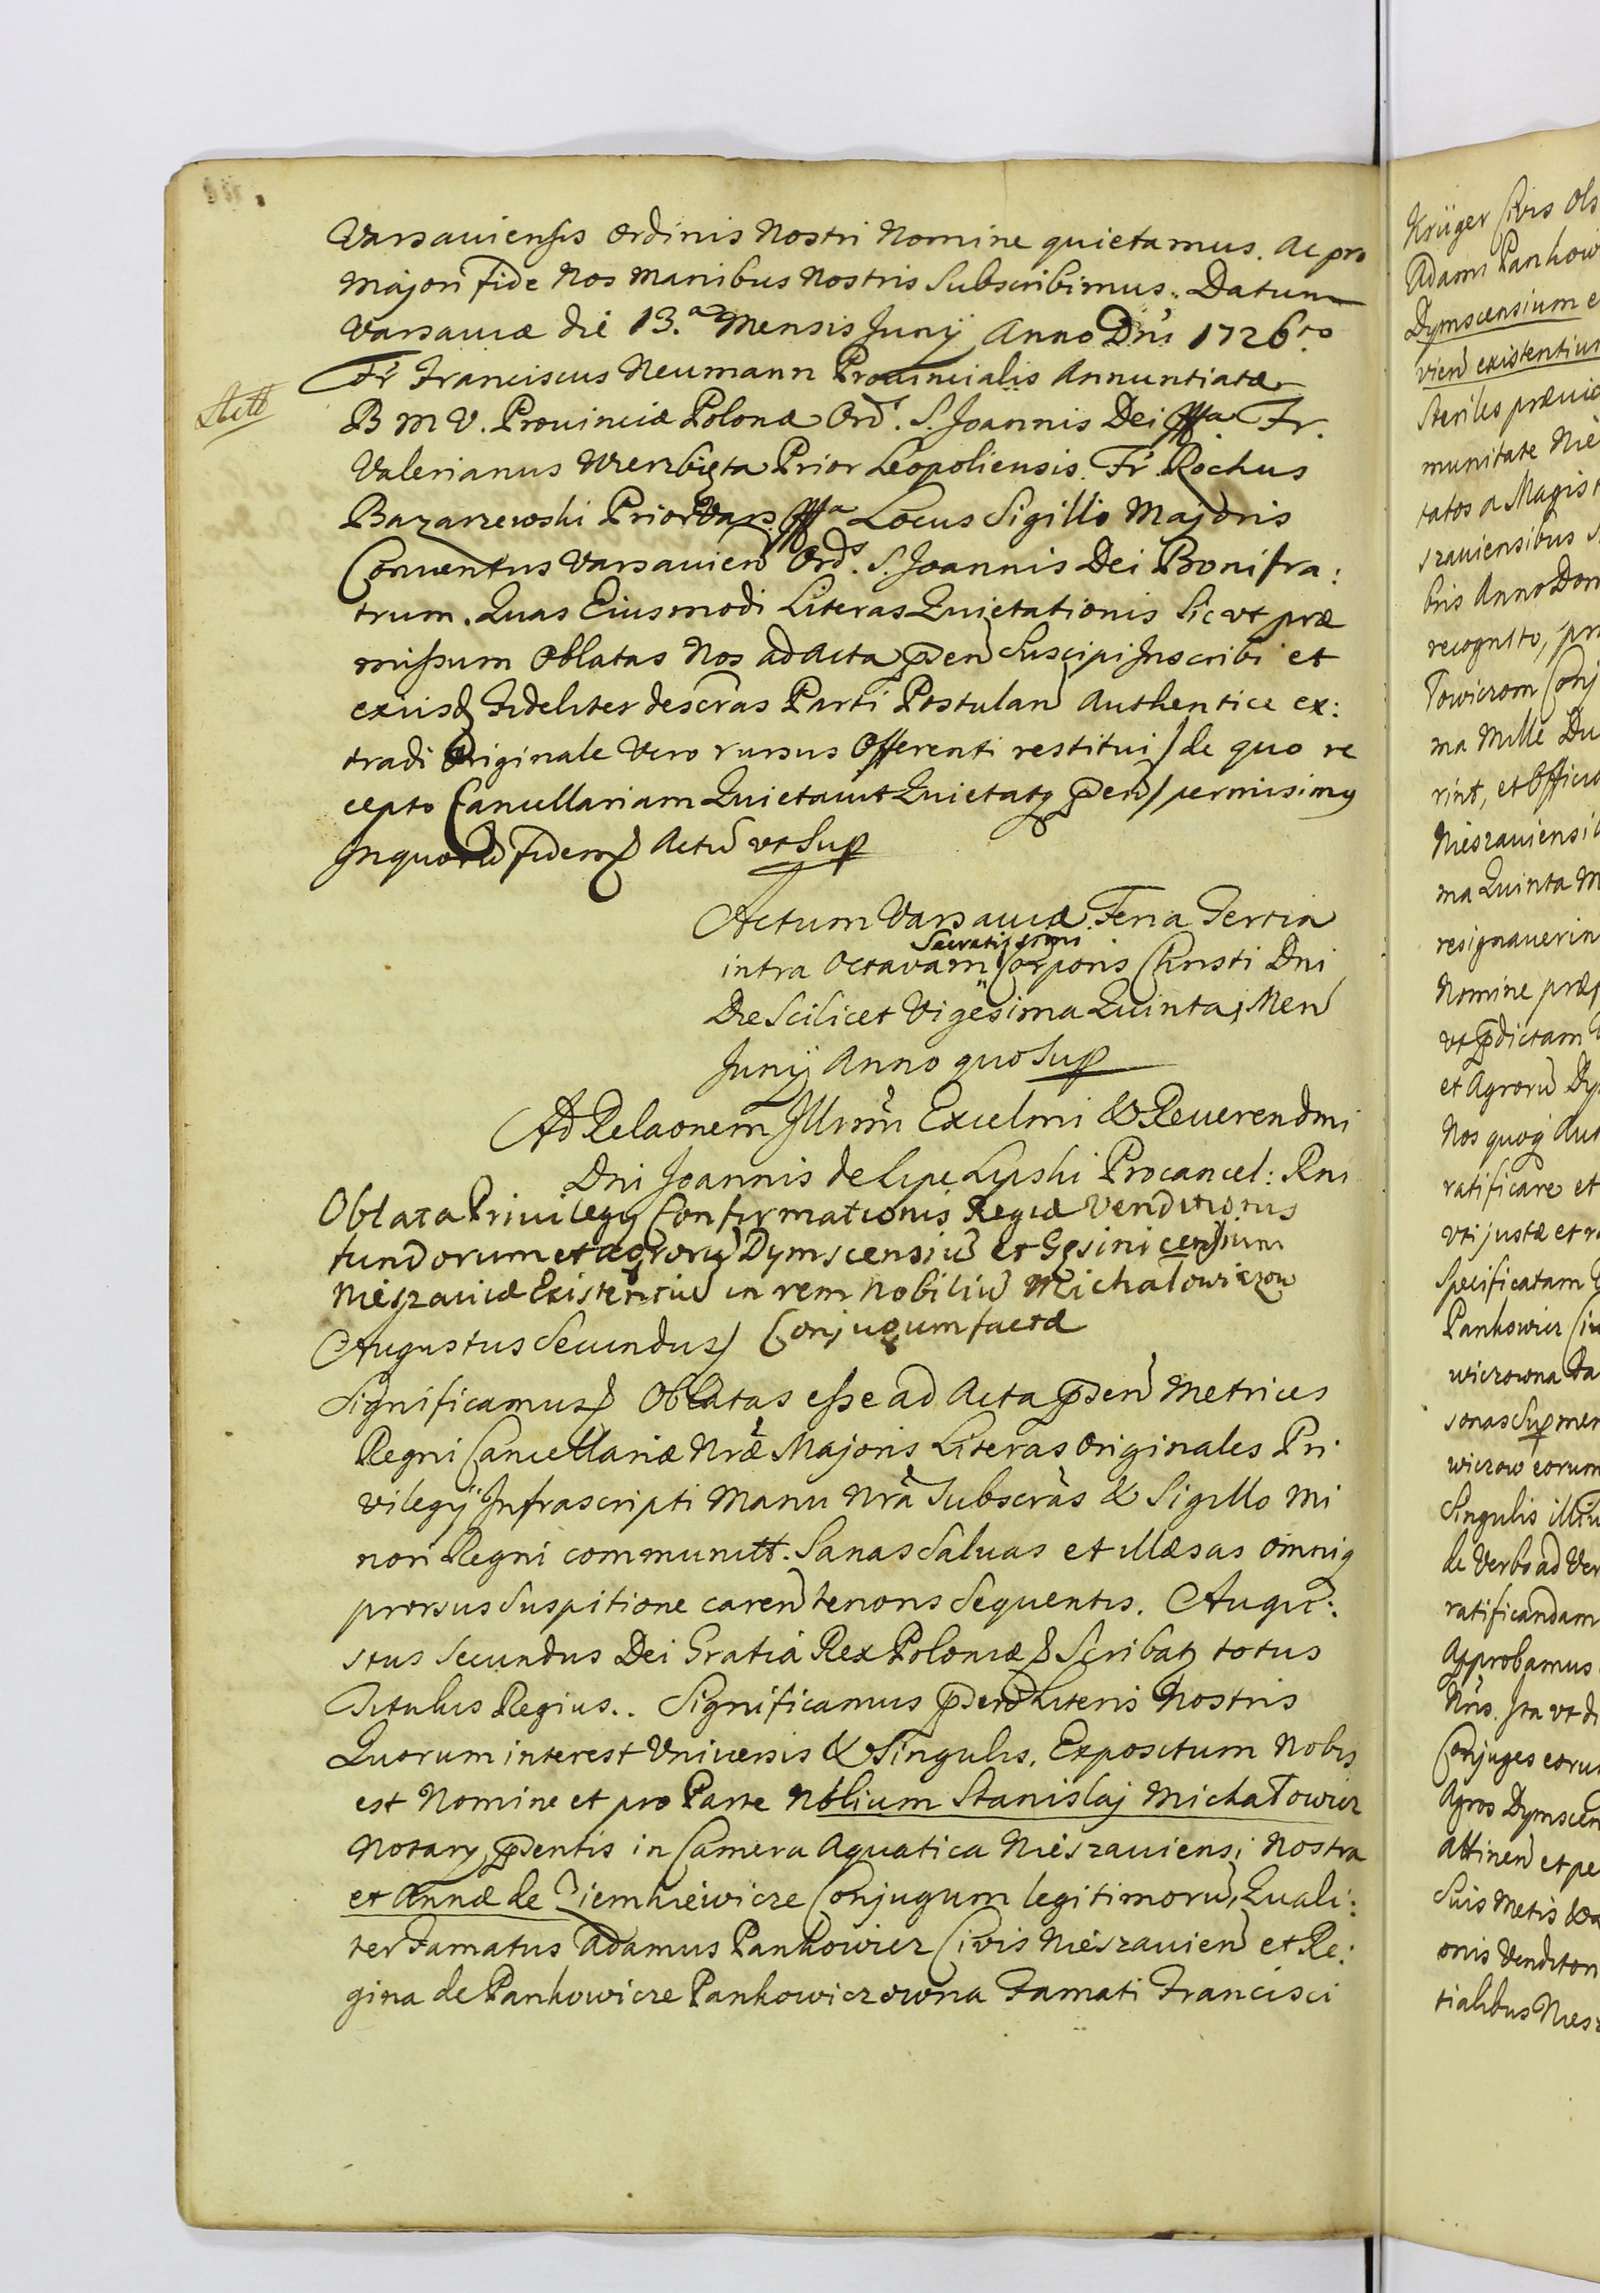 Varsaviensis Ordinis Nostri Nomine quietamus. Ac pro
Majori fide Nos Manibus Nostris Subscribimus. Datum
Varsaviæ die 13.a Mensis Junij Anno Dni 1726to
Fr Franciscus Neumann Provincialis Annuntiatæ
B M V. Provinciæ Polonæ Ord. S. Joannis Dei Fr.
Valerianus Wierzbięta Prior Leopoliensis. Fr Rochus
Bazarzewski Prior Vars. Locus Sigilli Majoris
Conventus Varsavien Ord. S. Joannis Dei Bonifra:
trum. Quas Eiusmodi Literas Quietationis Sic vt præ
missum Oblatas Nos ad Acta pden Suscipi Inscribi et
exiisq Fideliter descras Parti Postulan Authentice ex:
tradi Originale Vero rursus Offerenti restitui / de quo re
cepto Cancellariam Quietavit Quietatq pden / permisimq
In quorū fidem Actū vt Sup
Actum Varsaviæ. Feria Tertia
Sacratissimi
intra Octavam Corporis Christi Dni
Die Scilicet Vigesima Quinta, Men
Junij Anno quo Sup
Ad Relaonem Illrmi Excelmi & Reverendmi
Dni Joannis de Lipe Lipski Procancel: Rni
Oblata Privilegij Confirmationis Regiæ Venditionis
fundorum et agrorū Dymscensiū et Gęsinicensium
Nieszaviæ Existentiū in rem Nobiliū Michałowiczow
Augustus Secundus Conjugum factæ
Significamus Oblatas esse ad Acta pden Metrices
Regni Cancellariæ Nræ Majoris Literas Originales Pri
vilegij Infrascripti Manu Nra Subscras & Sigillo Mi
nori Regni communitt. Sanas Salvas et illæsas omniq
prorsus Suspitione caren tenoris Sequentis. Augu:
stus Secundus Dei Gratia Rex Poloniæ Scribatq totus
Titulus Regius.. Significamus pden Literis Nostris
Quorum interest Vniversis & Singulis. Expositum Nobis
est Nomine et pro Parte Nblium Stanislaj Michałowicz
Notary pdentis in Camera Aquatica Nieszaviensi Nostra
et Annæ de Ziemkiewicze Conjugum legitimorū, Quali:
ter Famatus Adamus Pankowicz Civis Nieszavien et Re:
gina de Pankowicze Pankowiczowna Famati Francisci
Krüger Civis Ols
Adami Pankow
Dymscensium e
vien existentiu
Steriles prævie
munitate Nie
tatos a Magist
szaviensibus
bris Anno Dom
recognito, pr
Towiczom Conj
ma Mille Du
rint, et Officio
Nieszaviensi
ma Quinta M
resignaverin
Nomine præf
vt pdictam
et Agrorū Dy
Nos quoq Aut
ratificare et
vti justæ et r
Specificatam
Pankowicz Ci
wiczowna Fa
sonas Sup men
wiczow eorum
Singulis illiu
de Verbo ad Ver
ratificandam
Approbamus
Nris. Ita vt di
Conjuges eoru
Agros Dymscen
Attinen et pe
Suis Metis &a
onis Venditor
tialibus Niesz